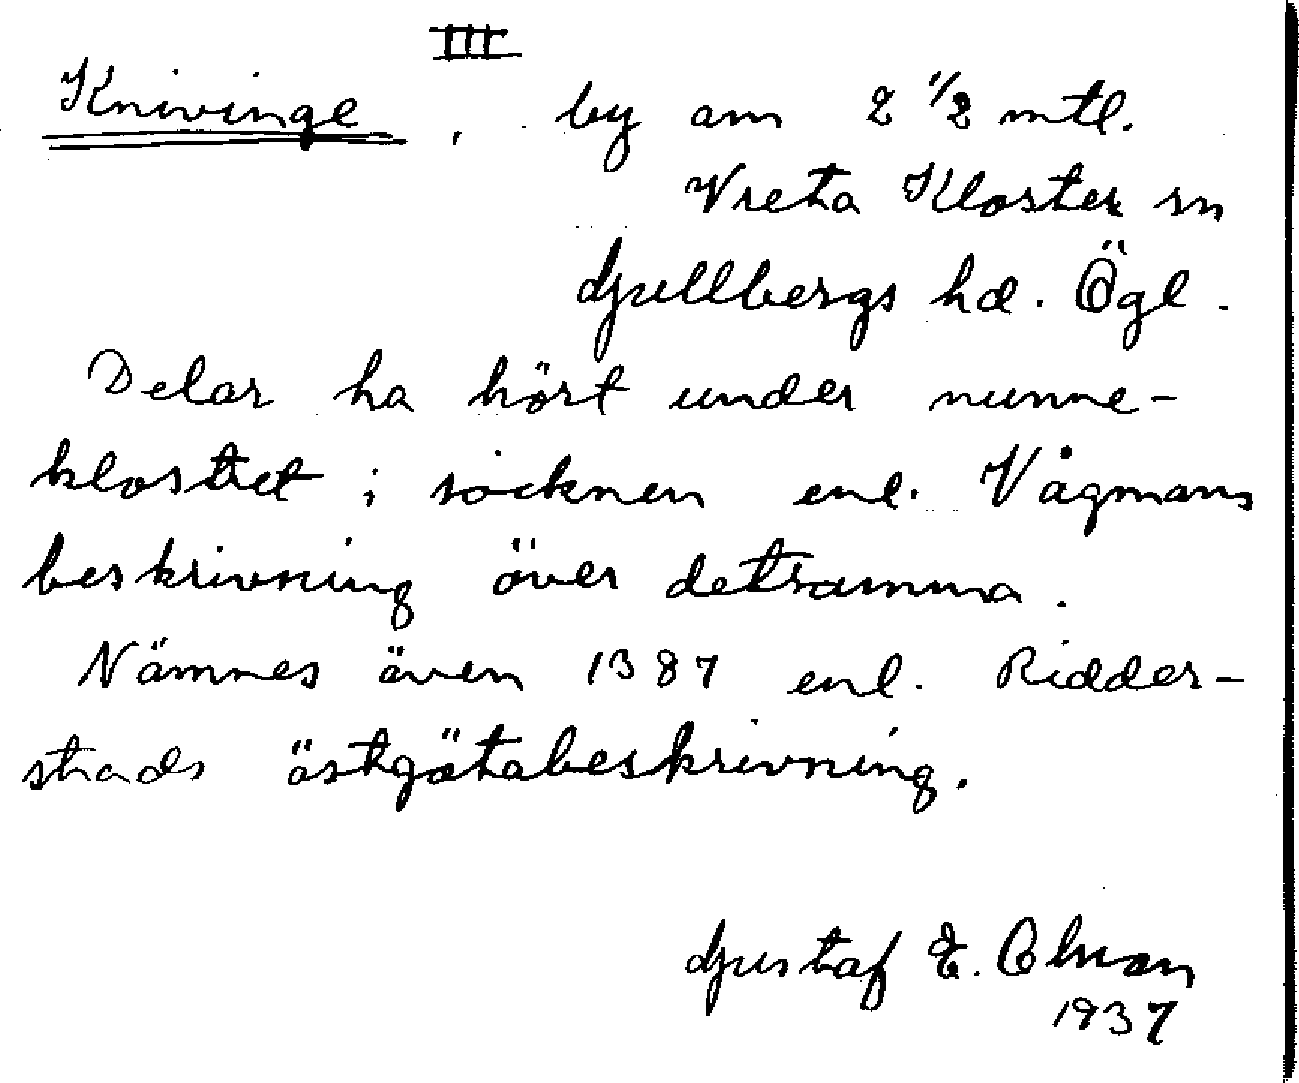 III
Knivinge, by om 2 1/2 mtl.
Vreta Kloster sn
Gullbergs hd. Ögl.
Delar ha hört under nunne-
klostret i socknen enl. Vågmans
beskrivning över detsamma.
Nämnes även 1387 enl. Ridder-
stads östgötabeskrivning.
Gustaf E.
1937